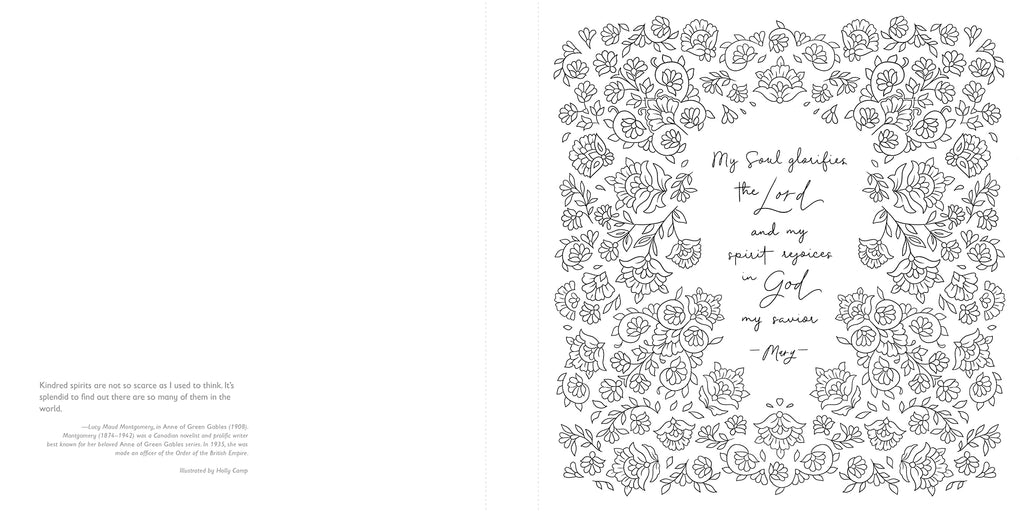 Kindred spirits are not so scarce as I used to think. It's
splendid to find out there are so many of them in the
world.
—Lucy Maud Montgomery, in Anne of Green Gables (1908).
Montgomery (1874–1942) was a Canadian novelist and prolific writer
best known for her beloved Anne of Green Gables series. In 1935, she was
made an officer of the Order of the British Empire.
Illustrated by Holly Camp
My Soul glorifies
the Lord
and my
spirit rejoices
in God
my savior
—Mary—